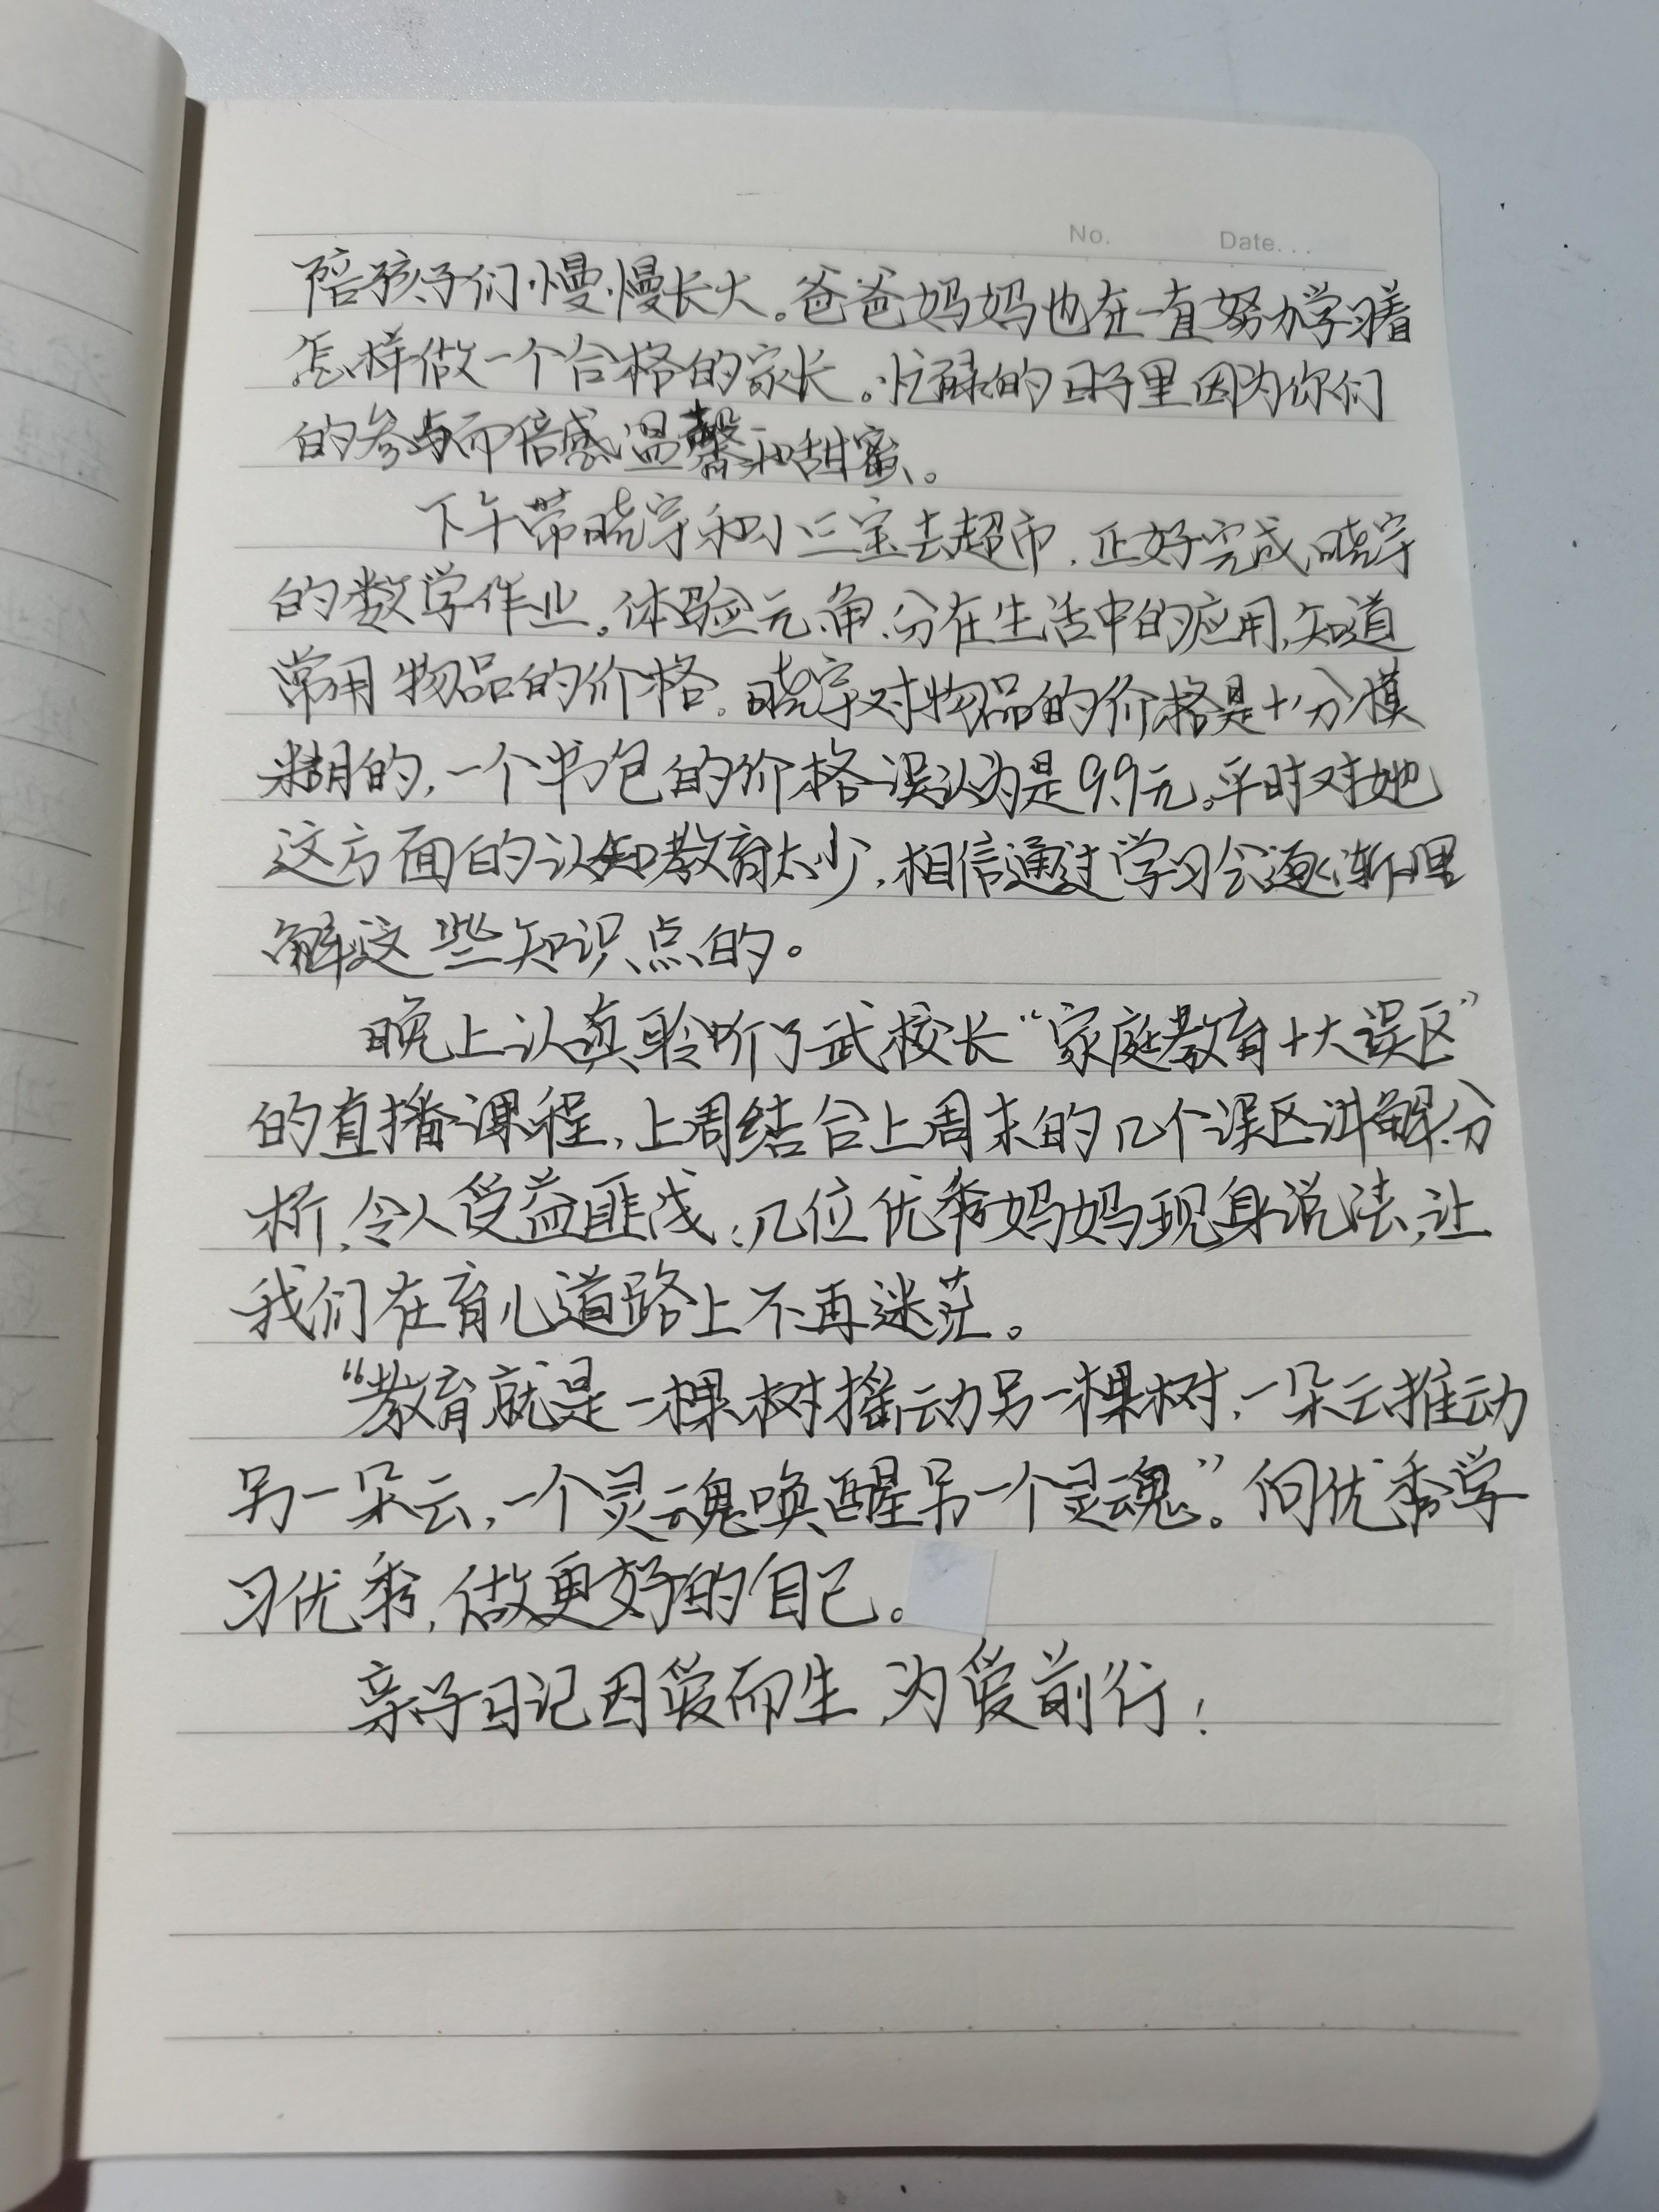 No. Date...
陪孩子们慢慢长大。爸爸妈妈也在一直努力学习着
怎样做一个合格的家长。忙碌的日子里因为你们
的参与而倍感温馨和甜蜜。
下午带晓宇和小三宝去超市，正好完成晓宇
的数学作业。体验元、角、分在生活中的应用，知道
常用物品的价格。晓宇对物品的价格是十分模
糊的，一个书包的价格误认为是9.9元。平时对她
这方面的认知教育太少，相信通过学习会逐渐理
解这些知识点的。
晚上认真聆听了武校长“家庭教育十大误区”
的直播课程，上周结合上周末的几个误区讲解分
析，令人受益匪浅；几位优秀妈妈现身说法，让
我们在育儿道路上不再迷茫。
“教育就是一棵树摇动另一棵树，一朵云推动
另一朵云，一个灵魂唤醒另一个灵魂”。向优秀学
习优秀，做更好的自己。
亲子日记因爱而生，为爱前行！